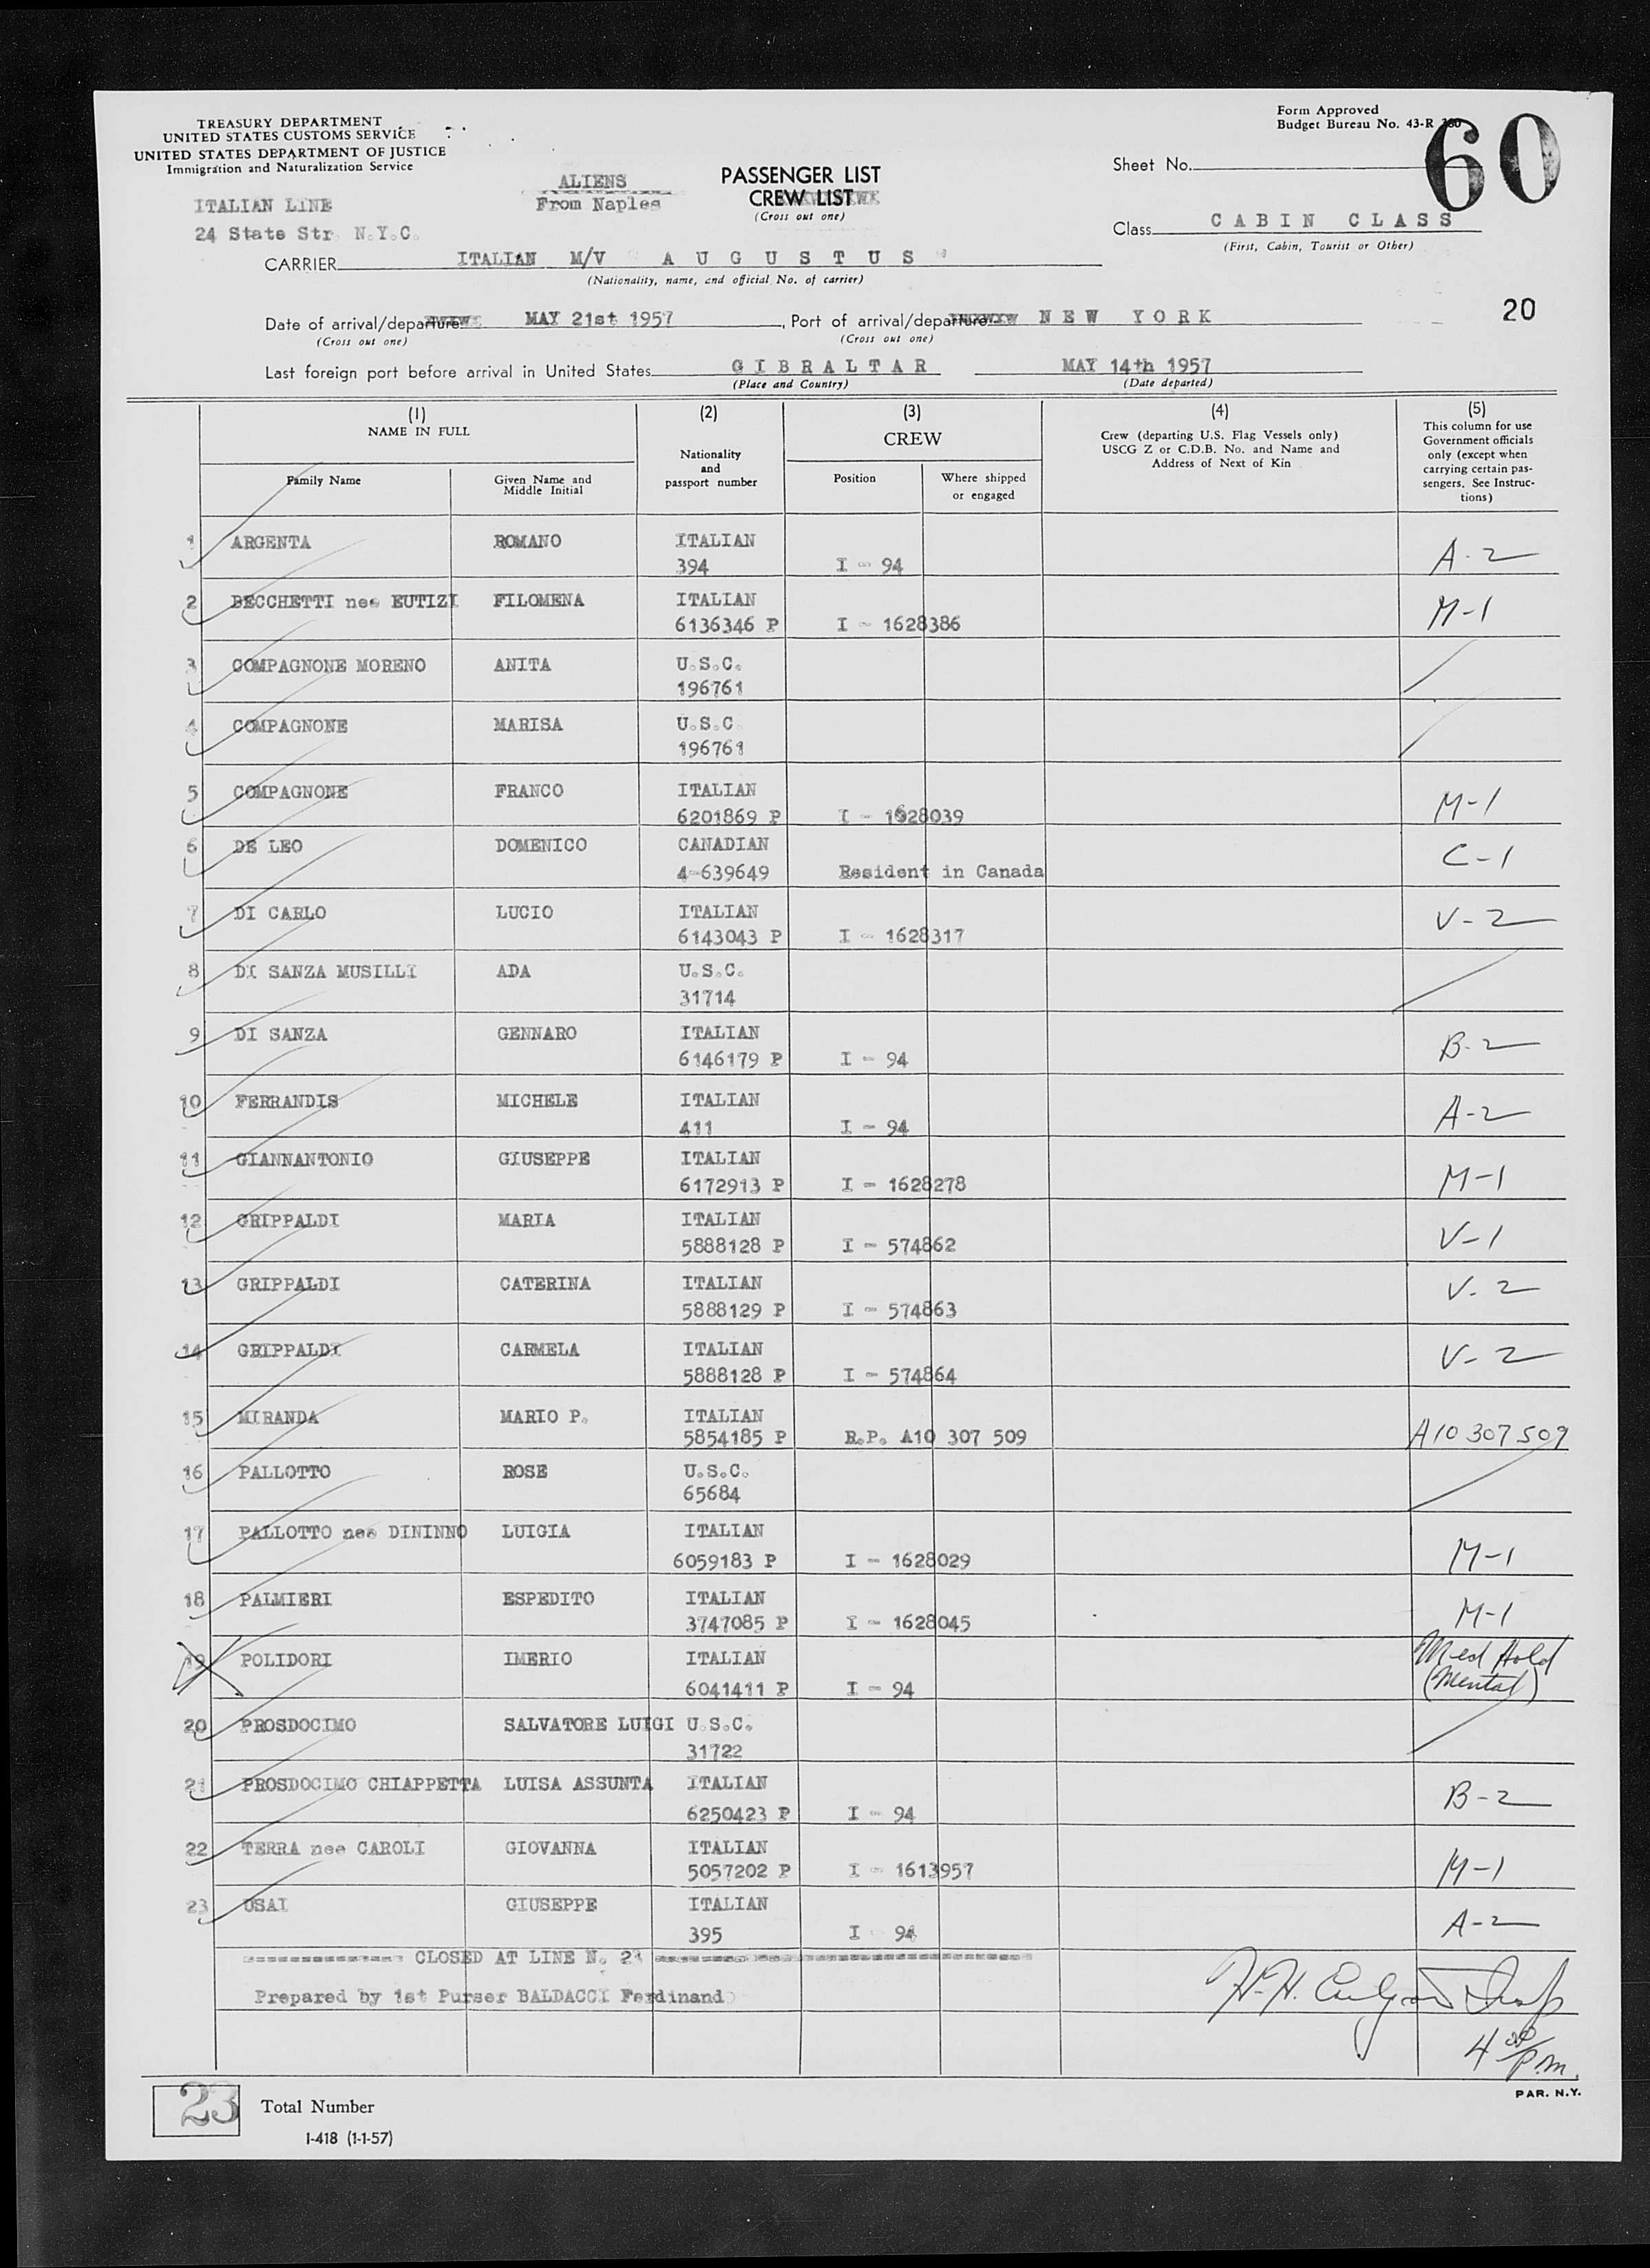 TREASURY DEPARTMENT
UNITED STATES CUSTOMS SERVICE
UNITED STATES DEPARTMENT OF JUSTICE
Immigration and Naturalization Service
Form Approved
Budget Bureau No. 43-R
60
Sheet No.
ALIENS
From Naples
PASSENGER LIST
CREW LIST
(Cross out one)
ITALIAN LINE
24 State Str. N.Y.C.
Class CABIN CLASS
(First, Cabin, Tourist or Other)
CARRIER ITALIAN M/V " AUGUSTUS "
(Nationality, name, and official No. of carrier)
Date of arrival/departure MAY 21st 1957, Port of arrival/departure NEW YORK
20
(Cross out one) (Cross out one)
Last foreign port before arrival in United States GIBRALTAR MAY 14th 1957
(Place and Country) (Date departed)
(1) NAME IN FULL
Family Name
Given Name and Middle Initial
(2)
Nationality and passport number
(3)
CREW
Position
Where shipped or engaged
(4)
Crew (departing U.S. Flag Vessels only)
USCG Z or C.D.B. No. and Name and
Address of Next of Kin
(5)
This column for use
Government officials
only (except when
carrying certain pas-
sengers. See Instruc-
tions)
1 ARGENTA ROMANO ITALIAN
394 I - 94 A-2
2 BECCHETTI nee EUTIZI FILOMENA ITALIAN
6136346 P I - 1628386 M-1
3 COMPAGNONE MORENO ANITA U.S.C.
196761
4 COMPAGNONE MARISA U.S.C.
196761
5 COMPAGNONE FRANCO ITALIAN
6201869 P I - 1628039 M-1
6 DE LEO DOMENICO CANADIAN
4-639649 Resident in Canada C-1
7 DI CARLO LUCIO ITALIAN
6143043 P I - 1628317 V-2
8 DI SANZA MUSILLI ADA U.S.C.
31714
9 DI SANZA GENNARO ITALIAN
6146179 P I - 94 B-2
10 FERRANDIS MICHELE ITALIAN
411 I - 94 A-2
11 GIANNANTONIO GIUSEPPE ITALIAN
6172913 P I - 1628278 M-1
12 GRIPPALDI MARIA ITALIAN
5888128 P I - 574862 V-1
13 GRIPPALDI CATERINA ITALIAN
5888129 P I - 574863 V-2
14 GRIPPALDI CARMELA ITALIAN
5888128 P I - 574864 V-2
15 MIRANDA MARIO P. ITALIAN
5854185 P R.P. A10 307 509 A10 307 509
16 PALLOTTO ROSE U.S.C.
65684
17 PALLOTTO nee DININNO LUIGIA ITALIAN
6059183 P I - 1628029 M-1
18 PALMIERI ESPEDITO ITALIAN
3747085 P I - 1628045 M-1
19 POLIDORI IMERIO ITALIAN Med Hold
6041411 P I - 94 (Mental)
20 PROSDOCIMO SALVATORE LUIGI U.S.C.
31722
21 PROSDOCIMO CHIAPPETTA LUISA ASSUNTA ITALIAN
6250423 P I - 94 B-2
22 TERRA nee CAROLI GIOVANNA ITALIAN
5057202 P I - 1613957 M-1
23 USAI GIUSEPPE ITALIAN
395 I 94 A-2
============ CLOSED AT LINE N. 23 ============
Prepared by 1st Purser BALDACCI Ferdinand
H.H.
4 p.m.
PAR. N.Y.
23 Total Number
I-418 (1-1-57)